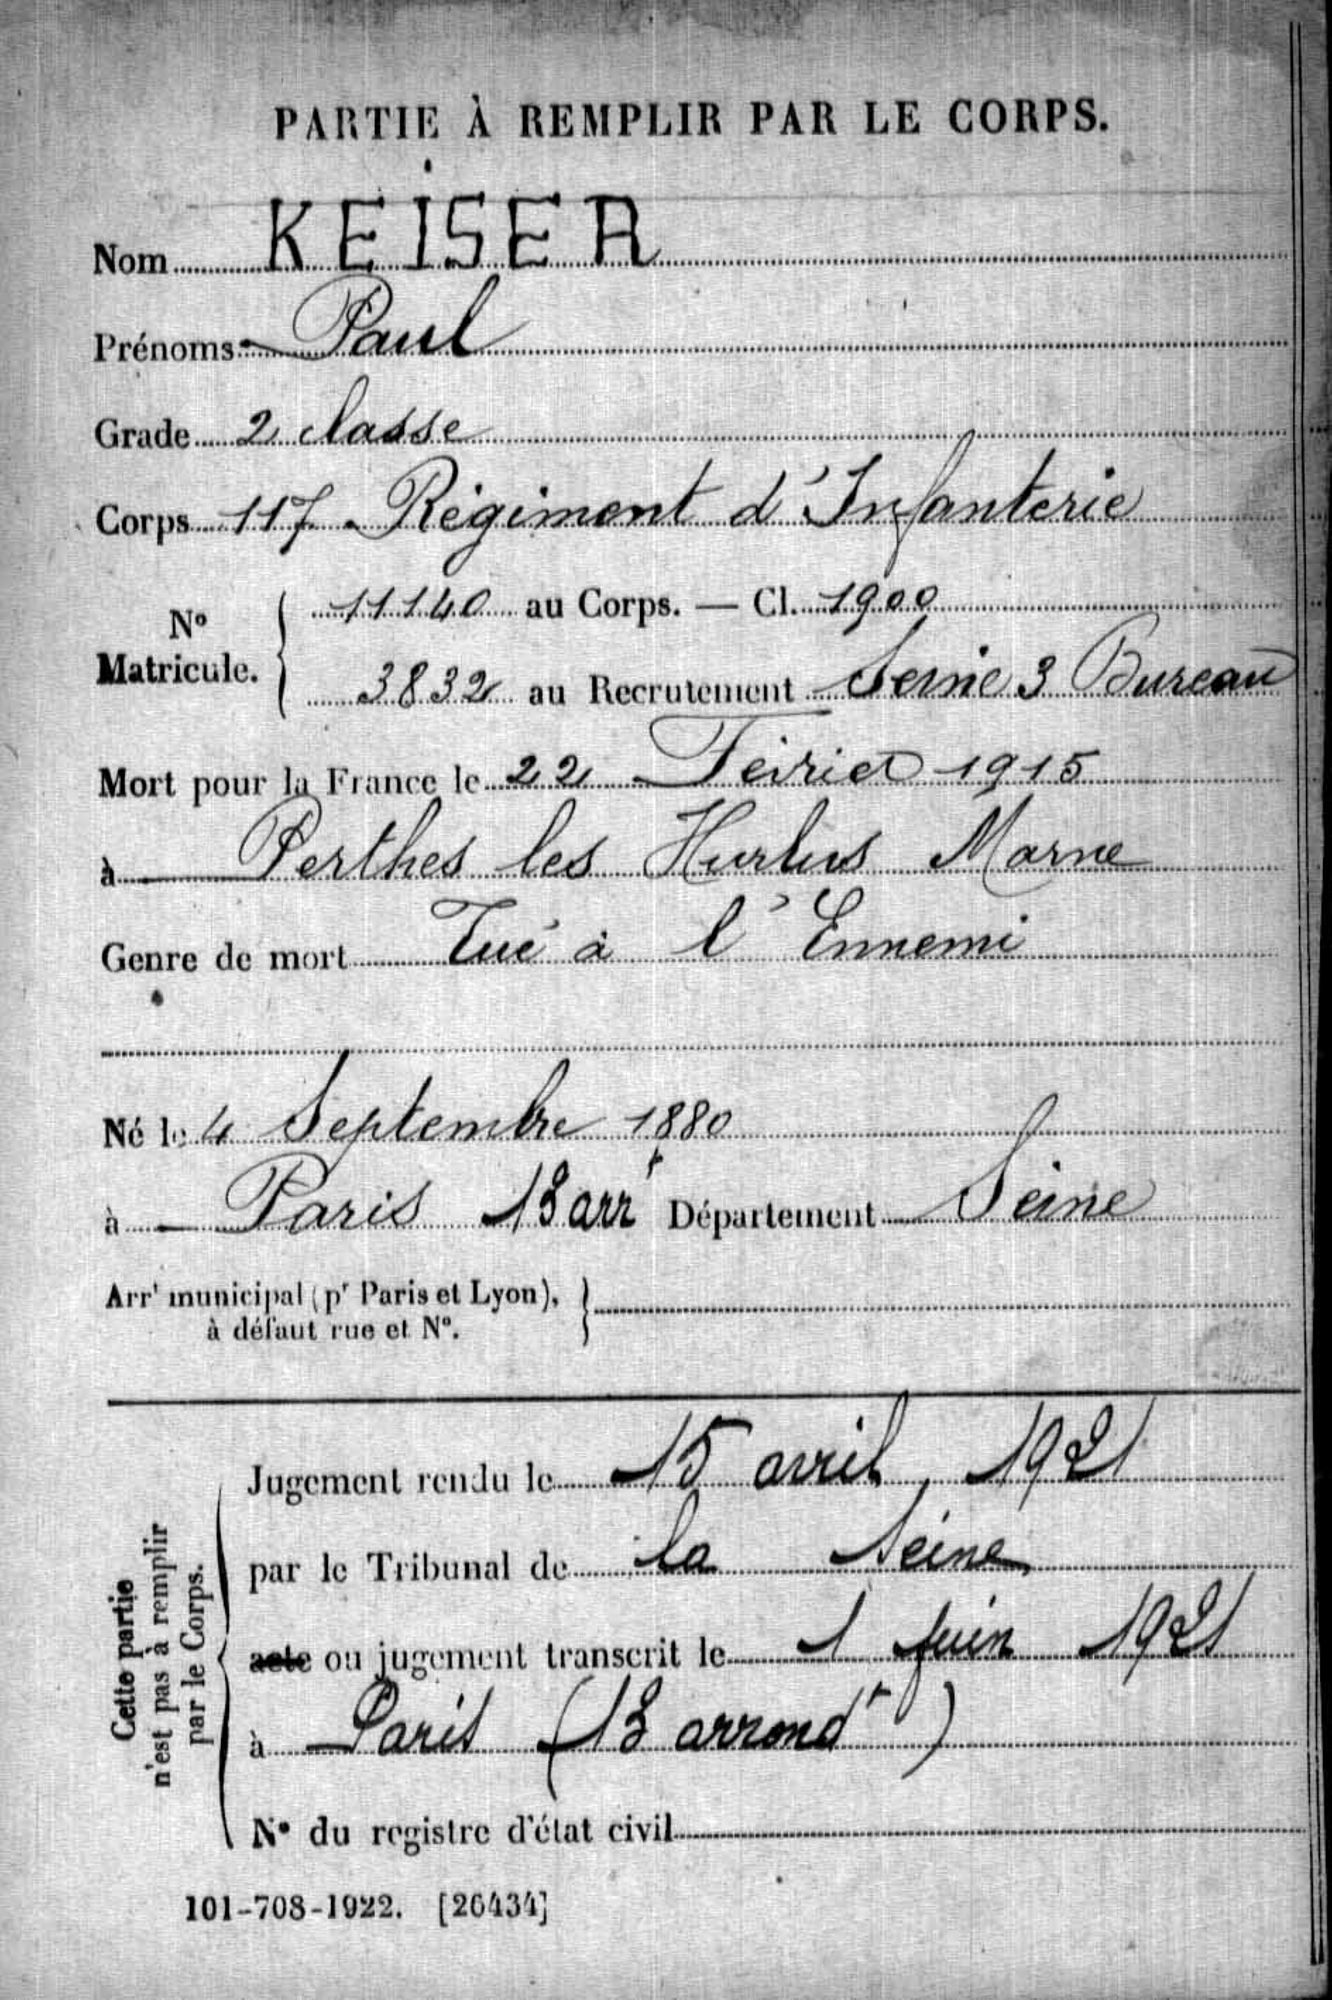 PARTIE À REMPLIR PAR LE CORPS.
Nom KEISER
Prénoms Paul
Grade 2 classe
Corps 117 Régiment d'Infanterie
No Matricule. { 11140 au Corps. — Cl. 1900
3832 au Recrutement Seine 3 Bureau
Mort pour la France le 22 Février 1915
à Perthes les Hurlus Marne
Genre de mort Tué à l'Ennemi
Né le 4 Septembre 1880
à Paris 13 arrt Département Seine
Arrt municipal (pr Paris et Lyon), à défaut rue et No. }
Cette partie n'est pas à remplir par le Corps.
Jugement rendu le 15 avril 1921
par le Tribunal de la Seine
acte ou jugement transcrit le 1 Juin 1921
à Paris (13 arrondt)
No du registre d'état civil
101-708-1922. [26434]